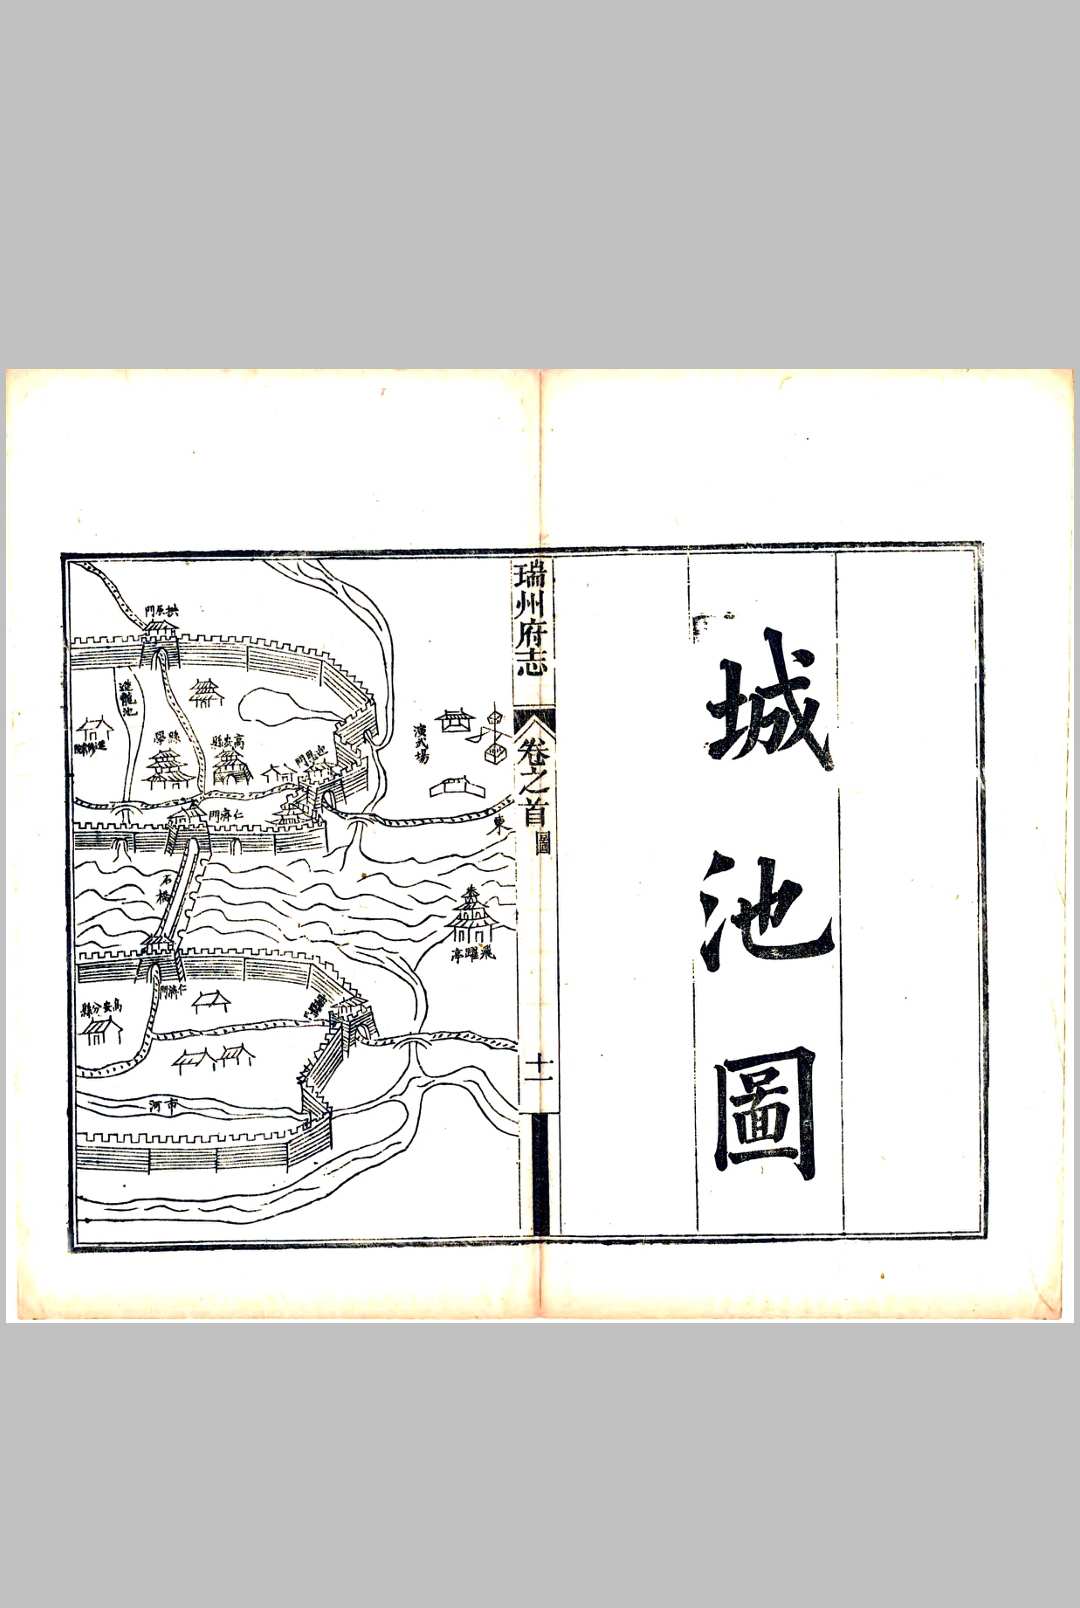 城池圖
瑞州府志
卷之首
圖
十一
拱辰門
進龍池
縣學
高安縣
迎恩門
演武場
東
仁濟門
石橋
飛躍亭
仁濟門
高安分縣
市河